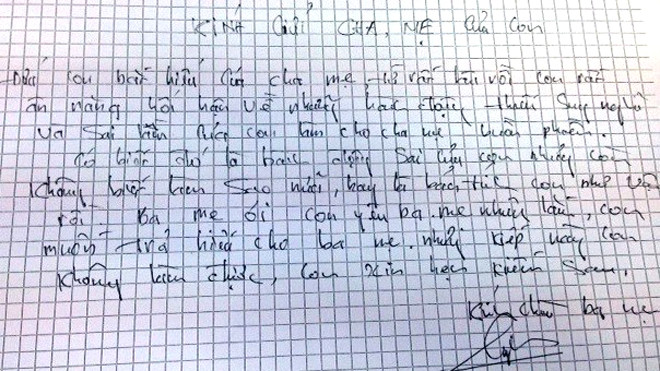 KÍNH GỬI CHA, MẸ của con
Đứa con bất hiếu của cha mẹ rất con rất
ăn năng hối hận về những hành động thiếu suy nghĩ
và sai lầm của con làm cho cha mẹ buồn phiền.
Có biết đó là hành động sai của con nhưng con
không biết làm sao nữa, hay là con như vậy
rồi. Ba mẹ ơi con yêu ba mẹ nhiều lắm, con
muốn trả hiếu cho ba mẹ nhưng kiếp này con
không làm được, con xin hẹn kiếp sau.
Kính chào ba mẹ